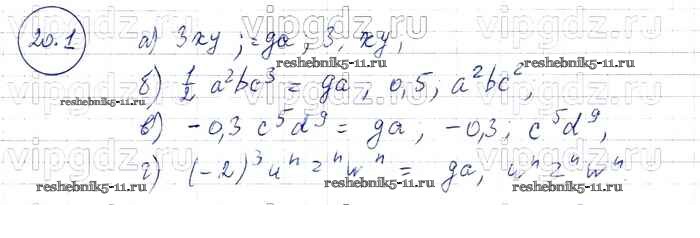 20.1 а) 3xy ; = да, 3, xy,
б) 1/2 a²bc³ = да, 0,5; a²bc²,
в) -0,3 c⁵d⁹ = да, -0,3; c⁵d⁹,
г) (-2)³ uⁿzⁿwⁿ = да, uⁿzⁿwⁿ
vipgdz.ru vipgdz.ru vipgdz.ru
reshebnik5-11.ru reshebnik5-11.ru reshebnik5-11.ru
reshebnik5-11.ru reshebnik5-11.ru reshebnik5-11.ru